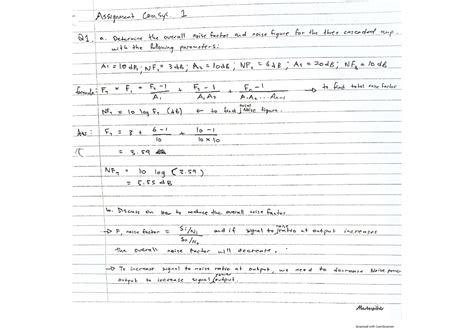 Assignment Com Sys 1
Q1. a. Determine the overall noise factor and noise figure for the three cascaded amp.
with the following parameters:
A1 = 10 dB, NF1 = 3 dB; A2 = 10dB, NF2 = 6dB; A3 = 20dB; NF3 = 10 dB
formula: FT = F1 + F2 - 1 / A1 + F3 - 1 / A1 A2 + Fn - 1 / A1 A2... An-1 → to find total noise factor
NFT = 10 log FT (dB) ← to find total Noise figure.
Ans: FT = 3 + 6-1 / 10 + 10-1 / 10 x 10
= 3.59
NFT = 10 log (3.59)
= 5.55 dB
b. Discuss on how to reduce the overall noise factor
→ F, noise factor = Si/Ni / So/No and if signal to noise ratio at output increases
the overall noise factor will decrease.
→ To increase signal to noise ratio at output, we need to decrease Noise power
output to increase signal power output.
Scanned with CamScanner